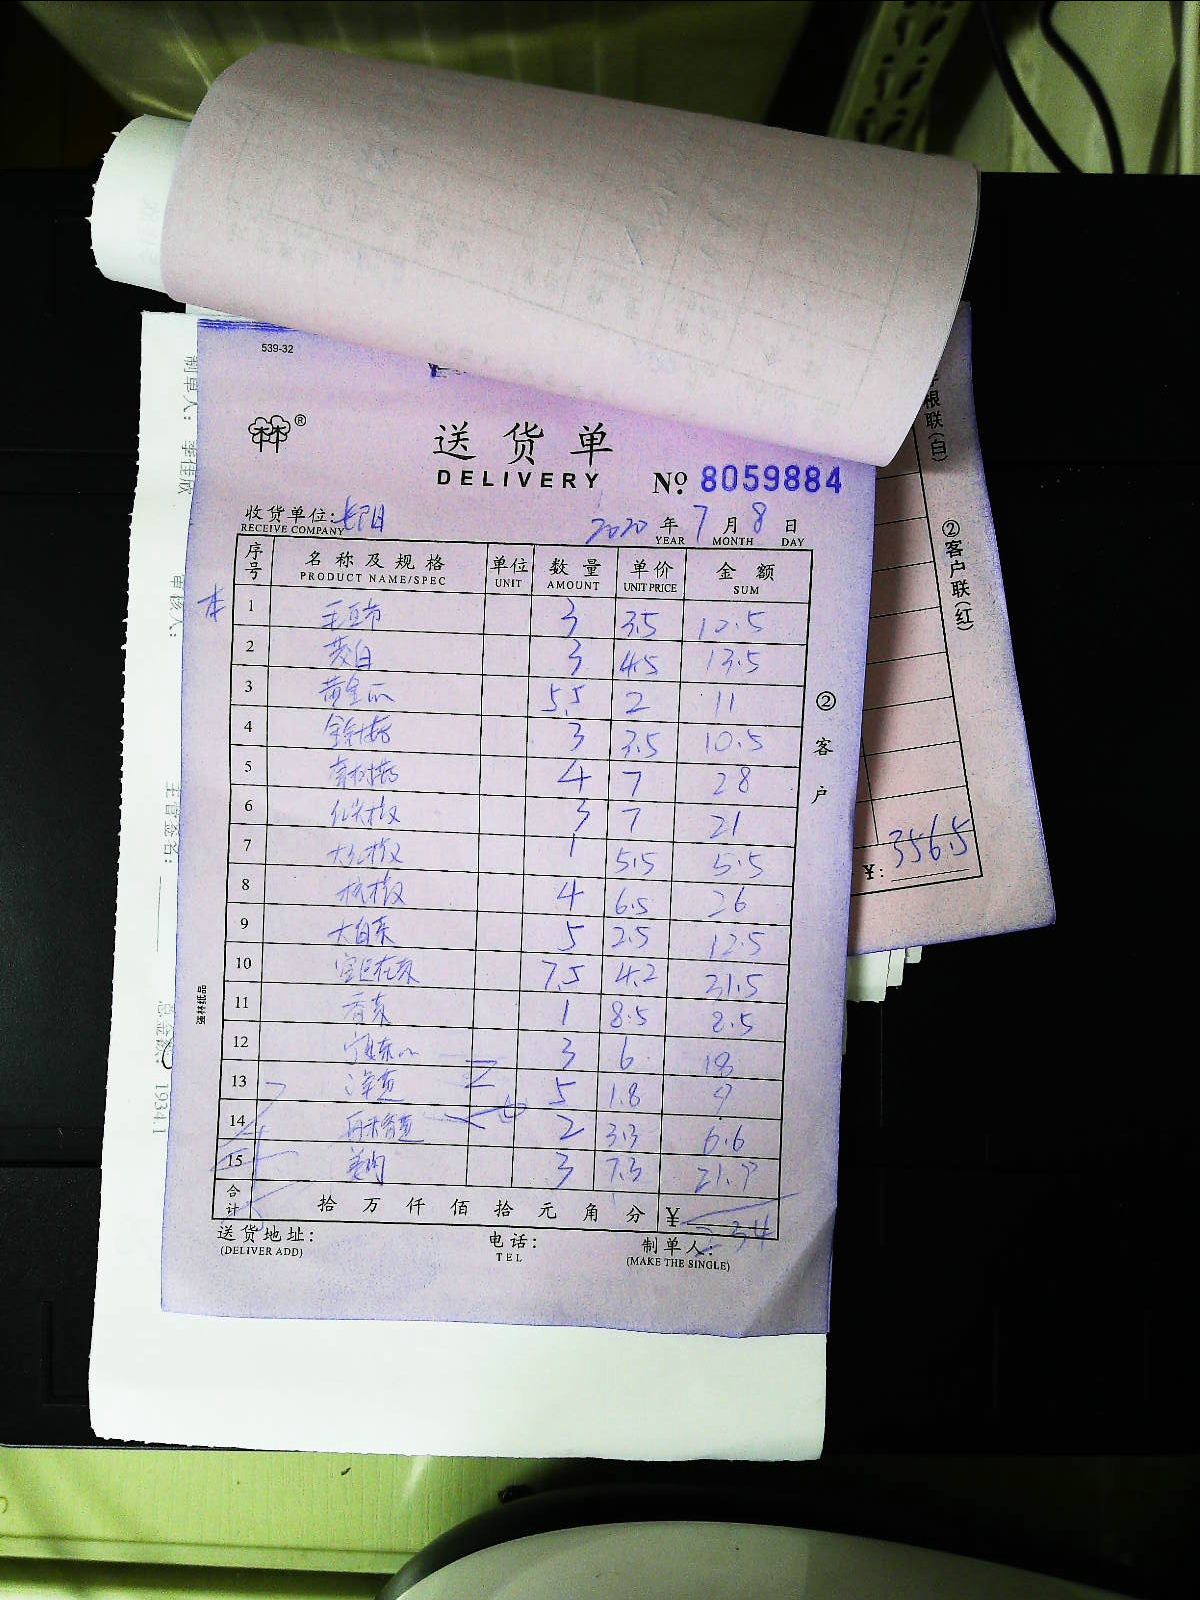 539-32
®
送货单
DELIVERY
No. 8059884
收货单位: 长阳
RECEIVE COMPANY
2020 年 7 月 8 日
YEAR MONTH DAY
序号 名称及规格 单位 数量 单价 金额
PRODUCT NAME/SPEC UNIT AMOUNT UNIT PRICE SUM
1 3 3.5 10.5
2 茭白 3 4.5 13.5
3 黄金瓜 5.5 2 11
4 金针菇 3 3.5 10.5
5 4 7 28
6 3 7 21
7 1 5.5 5.5
8 4 6.5 26
9 大白菜 5 2.5 12.5
10 7.5 4.2 31.5
11 香菜 1 8.5 8.5
12 3 6 18
13 洋葱 5 1.8 9
14 2 3.3 6.6
15 3 7.3 21.9
合计 拾 万 仟 佰 拾 元 角 分 ¥ 234
送货地址:
(DELIVER ADD)
电话:
TEL
制单人:
(MAKE THE SINGLE)
② 客户
强林纸品
根联(白)
②客户联(红)
¥: 356.5
制单人:
审核人:
主管签名:
总金额: 1934.1